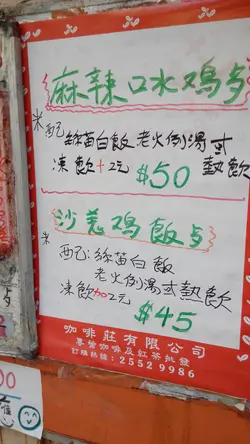 麻辣口水鸡歺
※配絲苗白飯 老火例湯或
凍飲+2元 熱飲
$50
沙羌鸡飯歺
※配:絲苗白飯
老火例湯或熱飲
凍飲加2元
$45
咖啡莊有限公司
專營咖啡及紅茶批發
訂購熱線：2552 9986